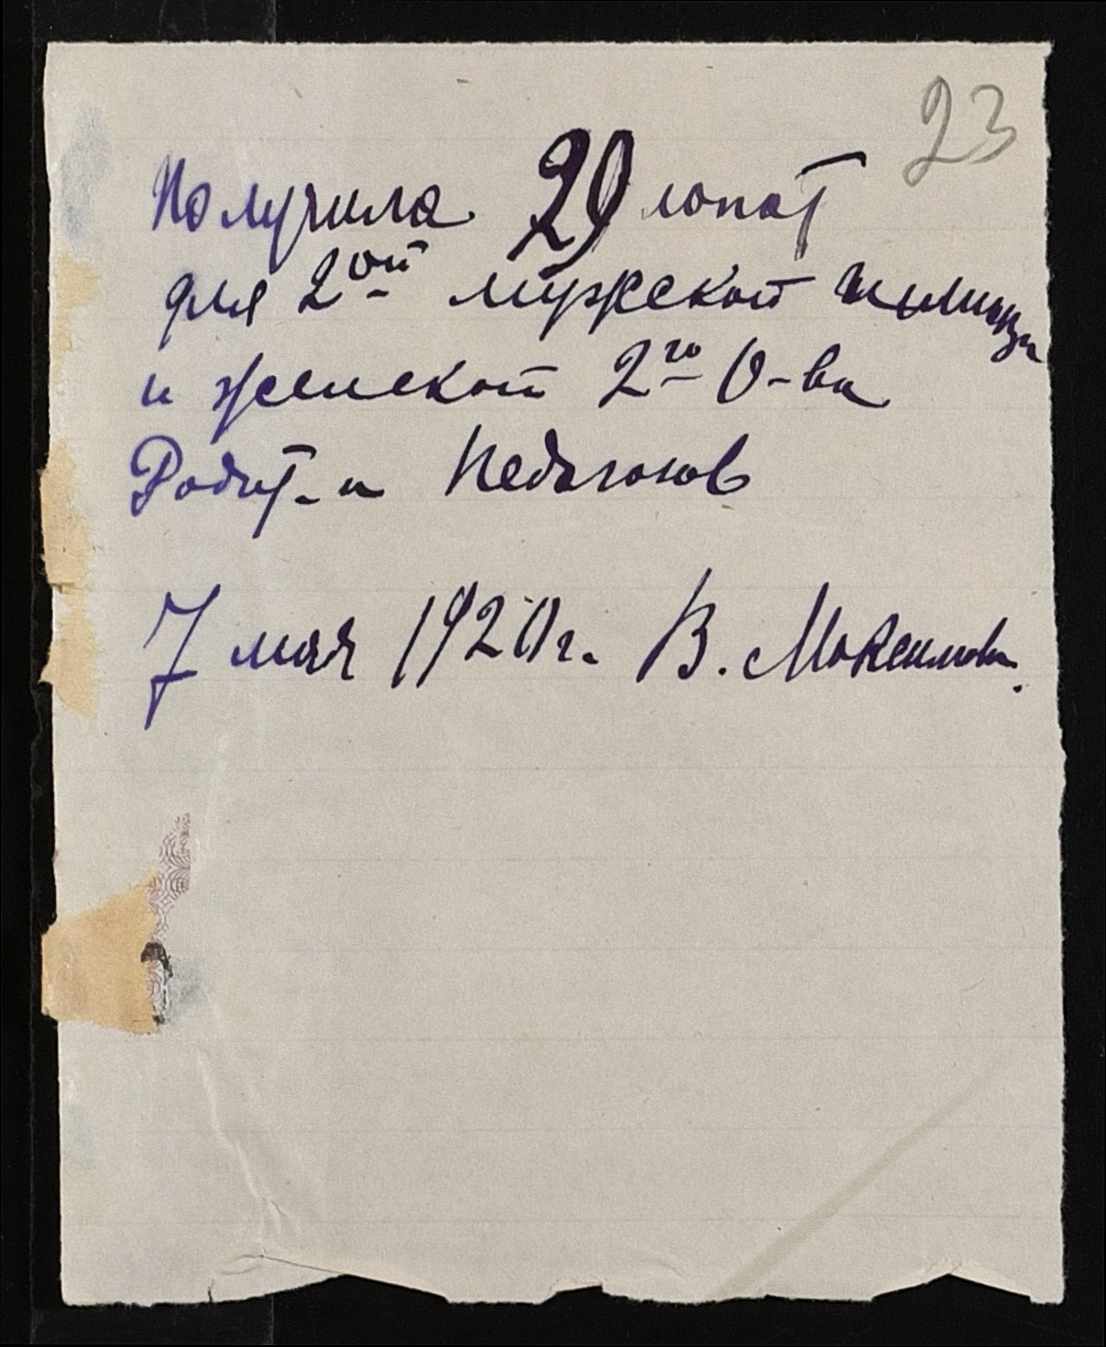 23
Получила 29 лопат
для 2ой мужской гимнази
и женской 2го О-ва
Родит. и Педагогов
7 мая 1920г. В. Максимова.